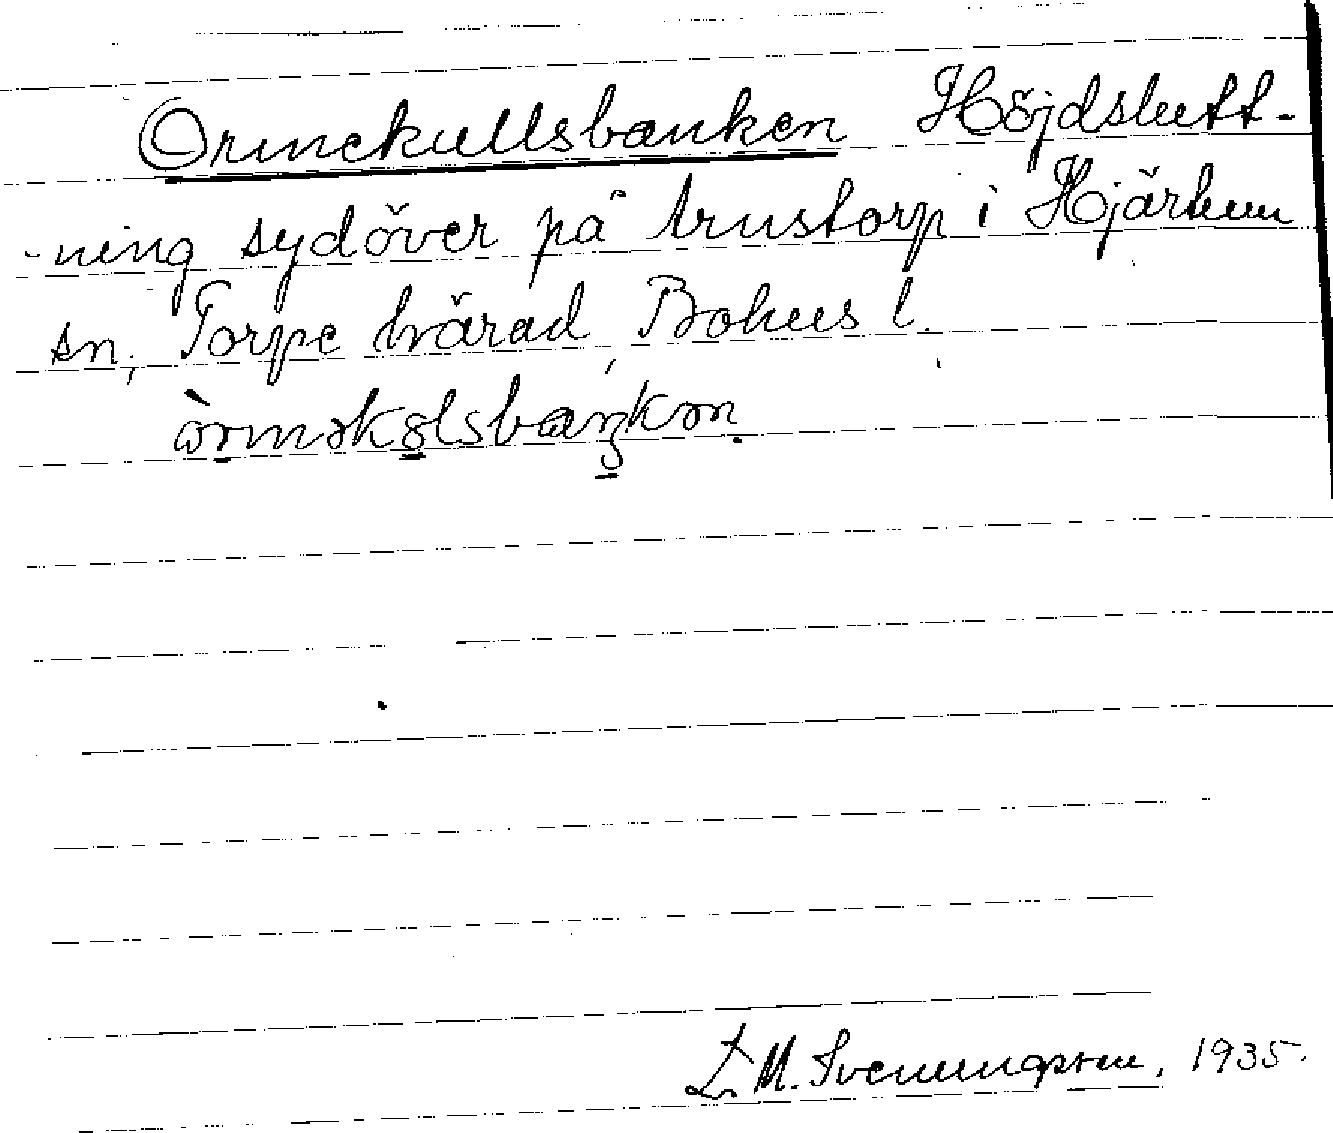 Ormekullsbanken Höjdslutt-
-ning sydöver på Arnstorp i Hjärtum
sn, Torpe härad, Bohus l.
òrməkolsbaŋkən
L. M. Svenungsson, 1935.